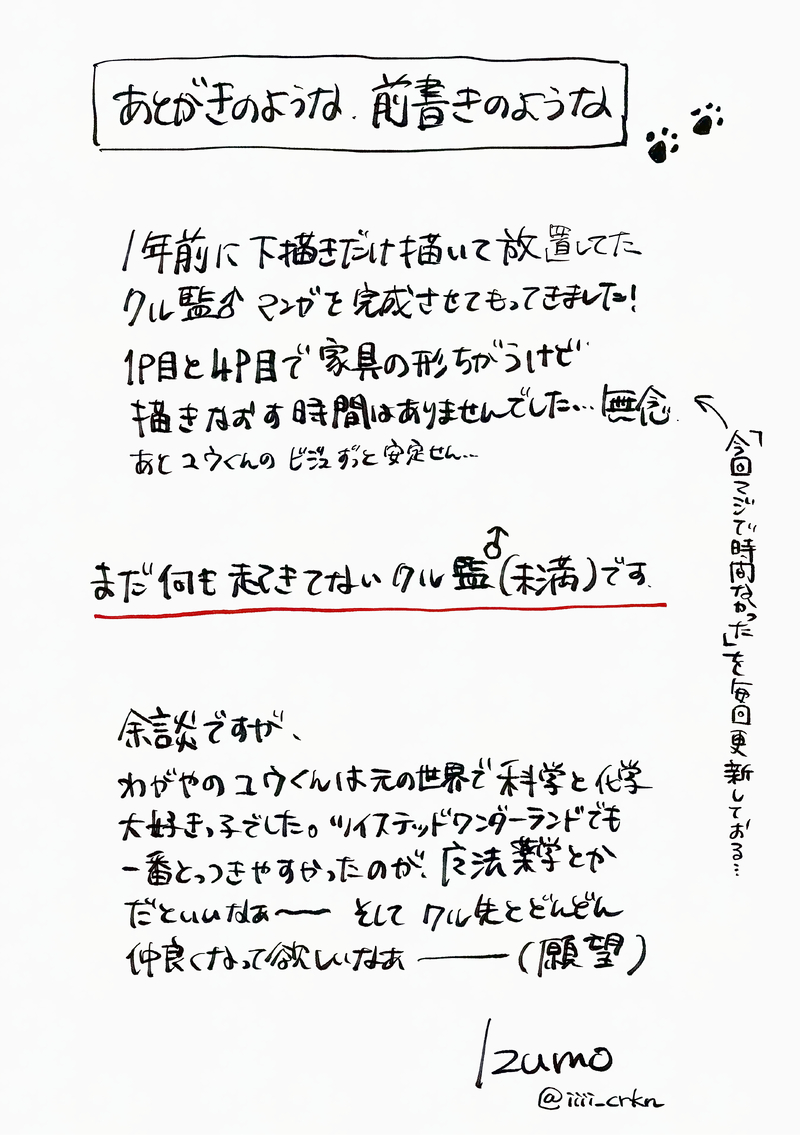 あとがきのような、前書きのような
1年前に下描きだけ描いて放置してた
クル監♂マンガを完成させてもってきました!
1P目と4P目で家具の形ちがうけど
描きなおす時間はありませんでした…無念
あとユウくんのビジュずっと安定せん…
「今回マジで時間なかった」を毎回更新しておる…
まだ何も起きてないクル監♂(未満)です.
余談ですが、
わがやのユウくんは元の世界で科学と化学
大好きっ子でした。ツイステッドワンダーランドでも
一番とっつきやすかったのが、魔法薬学とか
だといいなぁ〜〜 そして クル先とどんどん
仲良くなって欲しいなぁ――(願望)
Izumo
@iiii_crkn